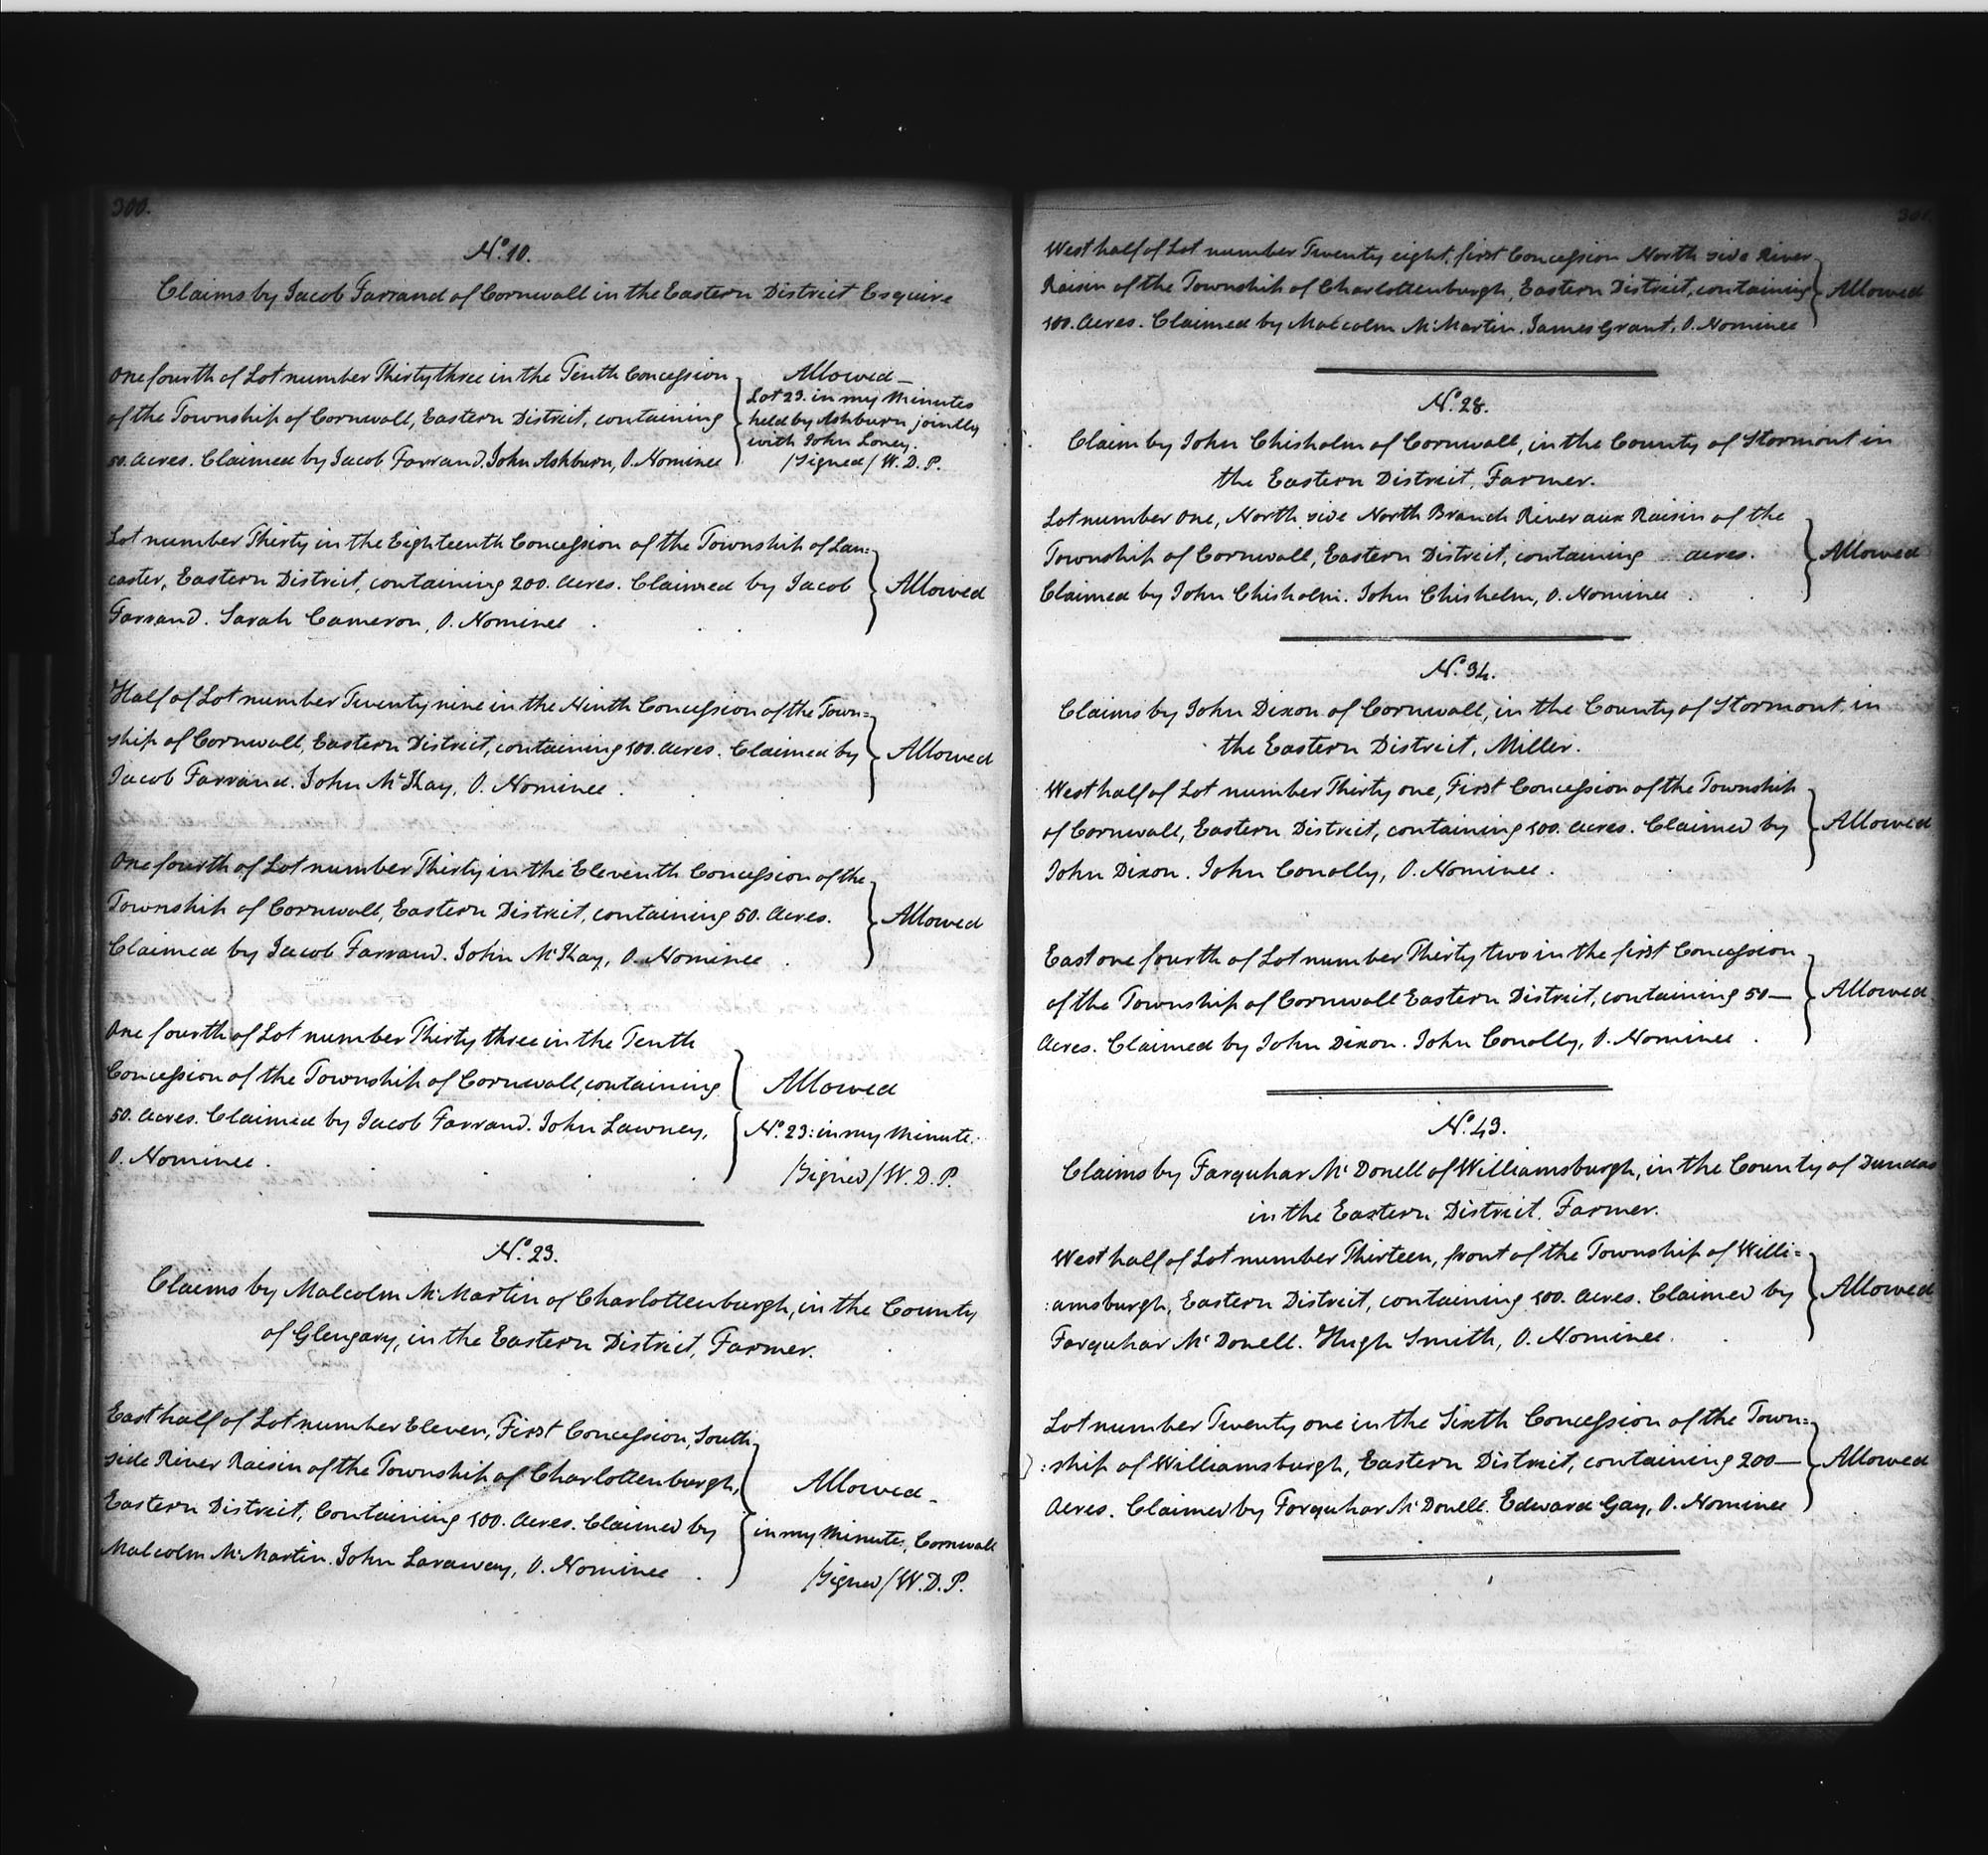 300.
No. 10.
Claims by Jacob Farrand of Cornwall in the Eastern District Esquire
One fourth of Lot number Thirty three in the Tenth Concession
of the Township of Cornwall, Eastern District, containing
50. Acres. Claimed by Jacob Farrand. John Ashburn, O. Nominee
Allowed—
Lot 23. in my Minutes
held by Ashburn jointly
with John Loney.
/Signed/ W. D. P.
Lot number Thirty in the Eighteenth Concession of the Township of Lan=
caster, Eastern District, containing 200. Acres. Claimed by Jacob
Farrand. Sarah Cameron, O. Nominee.
Allowed
Half of Lot number Twenty nine in the Ninth Concession of the Town=
ship of Cornwall, Eastern District, containing 100. Acres. Claimed by
Jacob Farrand. John McKay, O. Nominee.
Allowed
One fourth of Lot number Thirty in the Eleventh Concession of the
Township of Cornwall, Eastern District, containing 50. Acres.
Claimed by Jacob Farrand. John McKay, O. Nominee.
Allowed
One fourth of Lot number Thirty three in the Tenth
Concession of the Township of Cornwall, containing
50. Acres. Claimed by Jacob Farrand. John Lawney,
O. Nominee.
Allowed
No. 23: in my Minute.
/Signed/ W. D. P.
No. 23.
Claims by Malcolm McMartin of Charlottenburgh, in the County
of Glengary, in the Eastern District, Farmer.
East half of Lot number Eleven, First Concession, South
side River Raisin of the Township of Charlottenburgh,
Eastern District, Containing 100. Acres. Claimed by
Malcolm McMartin. John Laraway, O. Nominee.
Allowed—
in my Minute, Cornwall
/Signed/ W. D. P.
West half of Lot number Twenty eight, first Concession North side River
Raisin of the Township of Charlottenburgh, Eastern District, containing
100. Acres. Claimed by Malcolm McMartin. James Grant, O. Nominee
Allowed
No. 28.
Claim by John Chisholm of Cornwall, in the County of Stormont in
the Eastern District, Farmer.
Lot number One, North side North Branch River aux Raisin of the
Township of Cornwall, Eastern District, containing acres.
Claimed by John Chisholm. John Chisholm, O. Nominee.
Allowed
No. 34.
Claims by John Dixon of Cornwall, in the County of Stormont, in
the Eastern District, Miller.
West half of Lot number Thirty one, First Concession of the Township
of Cornwall, Eastern District, containing 100. Acres. Claimed by
John Dixon. John Conolly, O. Nominee.
Allowed
East one fourth of Lot number Thirty two in the first Concession
of the Township of Cornwall Eastern District, containing 50—
Acres. Claimed by John Dixon. John Conolly, O. Nominee.
Allowed
No. 43.
Claims by Farquhar McDonell of Williamsburgh, in the County of Dundas
in the Eastern District. Farmer.
West half of Lot number Thirteen, front of the Township of Willi=
:amsburgh, Eastern District, containing 100. Acres. Claimed by
Farquhar McDonell. Hugh Smith, O. Nominee.
Allowed
Lot number Twenty one in the Sixth Concession of the Town=
:ship of Williamsburgh, Eastern District, containing 200—
Acres. Claimed by Farquhar McDonell. Edward Gay, O. Nominee
Allowed